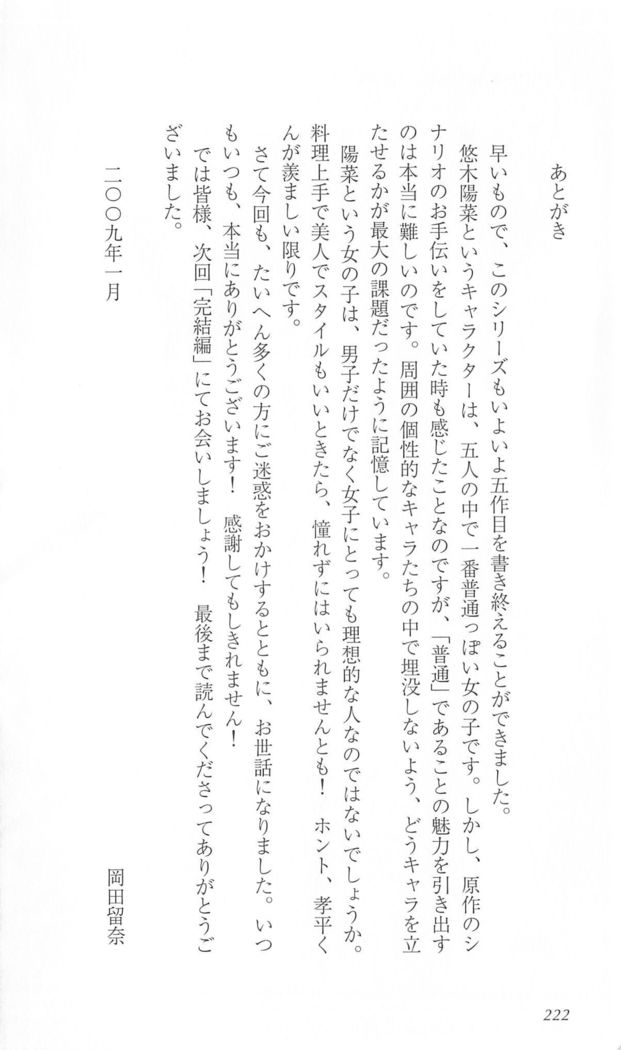 あとがき
早いもので、このシリーズもいよいよ五作目を書き終えることができました。
悠木陽菜というキャラクターは、五人の中で一番普通っぽい女の子です。しかし、原作のシ
ナリオのお手伝いをしていた時も感じたことなのですが、「普通」であることの魅力を引き出す
のは本当に難しいのです。周囲の個性的なキャラたちの中で埋没しないよう、どうキャラを立
たせるかが最大の課題だったように記憶しています。
陽菜という女の子は、男子だけでなく女子にとっても理想的な人なのではないでしょうか。
料理上手で美人でスタイルもいいときたら、憧れずにはいられませんとも！　ホント、孝平く
んが羨ましい限りです。
さて今回も、たいへん多くの方にご迷惑をおかけするとともに、お世話になりました。いつ
もいつも、本当にありがとうございます！　感謝してもしきれません！
では皆様、次回「完結編」にてお会いしましょう！　最後まで読んでくださってありがとうご
ざいました。
二〇〇九年一月
岡田留奈
222